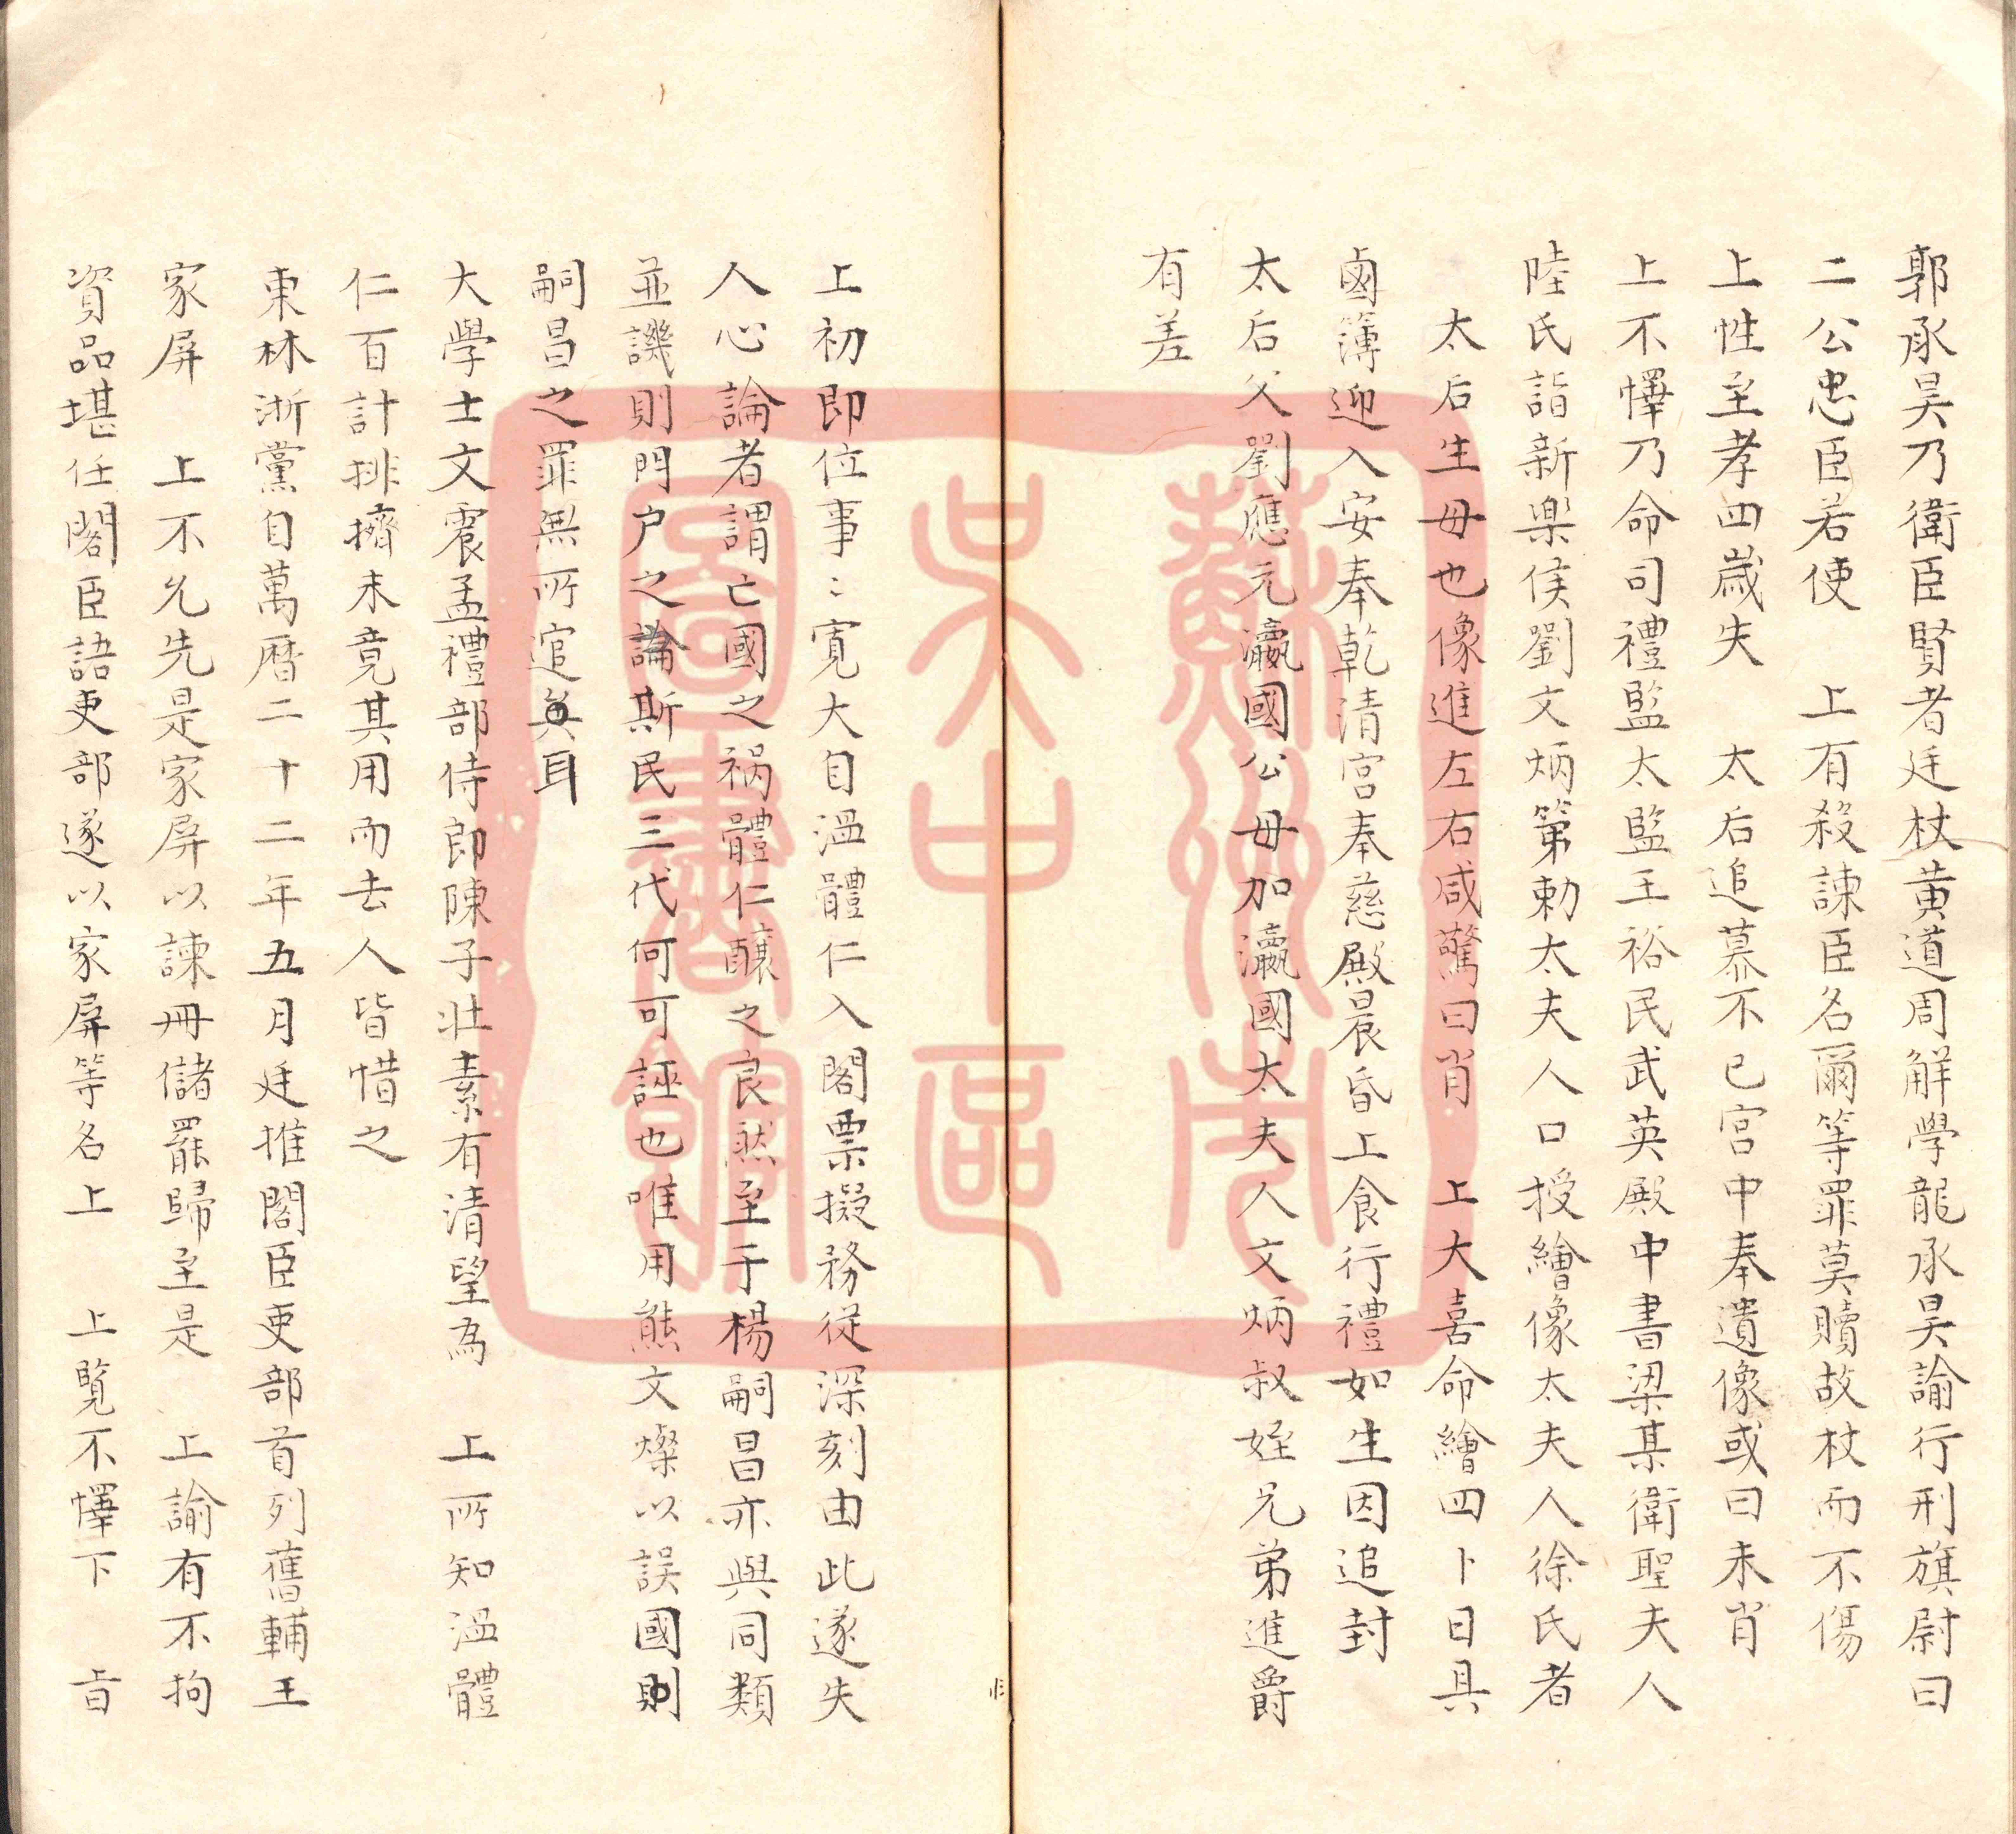 郭承昊乃衛臣賢者廷杖黄道周解學龍承昊諭行刑旗尉曰
二公忠臣若使　上有殺諫臣名爾等罪莫贖故杖而不傷
上性至孝四歲失　太后追慕不已宫中奉遺像或曰未肖
上不懌乃命司禮監太監王裕民武英殿中書梁某衛聖夫人
陸氏詣新樂侯劉文炳第勅太夫人口授繪像太夫人徐氏者
太后生母也像進左右咸驚曰肖　上大喜命繪四卜日具
鹵簿迎入安奉乾清宫奉慈殿晨昏上食行禮如生因追封
太后父劉應元瀛國公母加瀛國太夫人文炳叔姪兄弟進爵
有差
上初即位事〻寬大自溫體仁入閣票擬務從深刻由此遂失
人心論者謂亡國之禍體仁釀之良然至于楊嗣昌亦與同類
並譏則門户之論斯民三代何可誣也唯用熊文燦以誤國則
嗣昌之罪無所逭矣耳
大學士文震孟禮部侍郎陳子壯素有清望為　上所知溫體
仁百計排擠未竟其用而去人皆惜之
東林浙黨自萬曆二十二年五月廷推閣臣吏部首列舊輔王
家屏　上不允先是家屏以諫冊儲罷歸至是　上諭有不拘
資品堪任閣臣語吏部遂以家屏等名上　上覽不懌下　旨
蘇州市
吴中區
圖書館